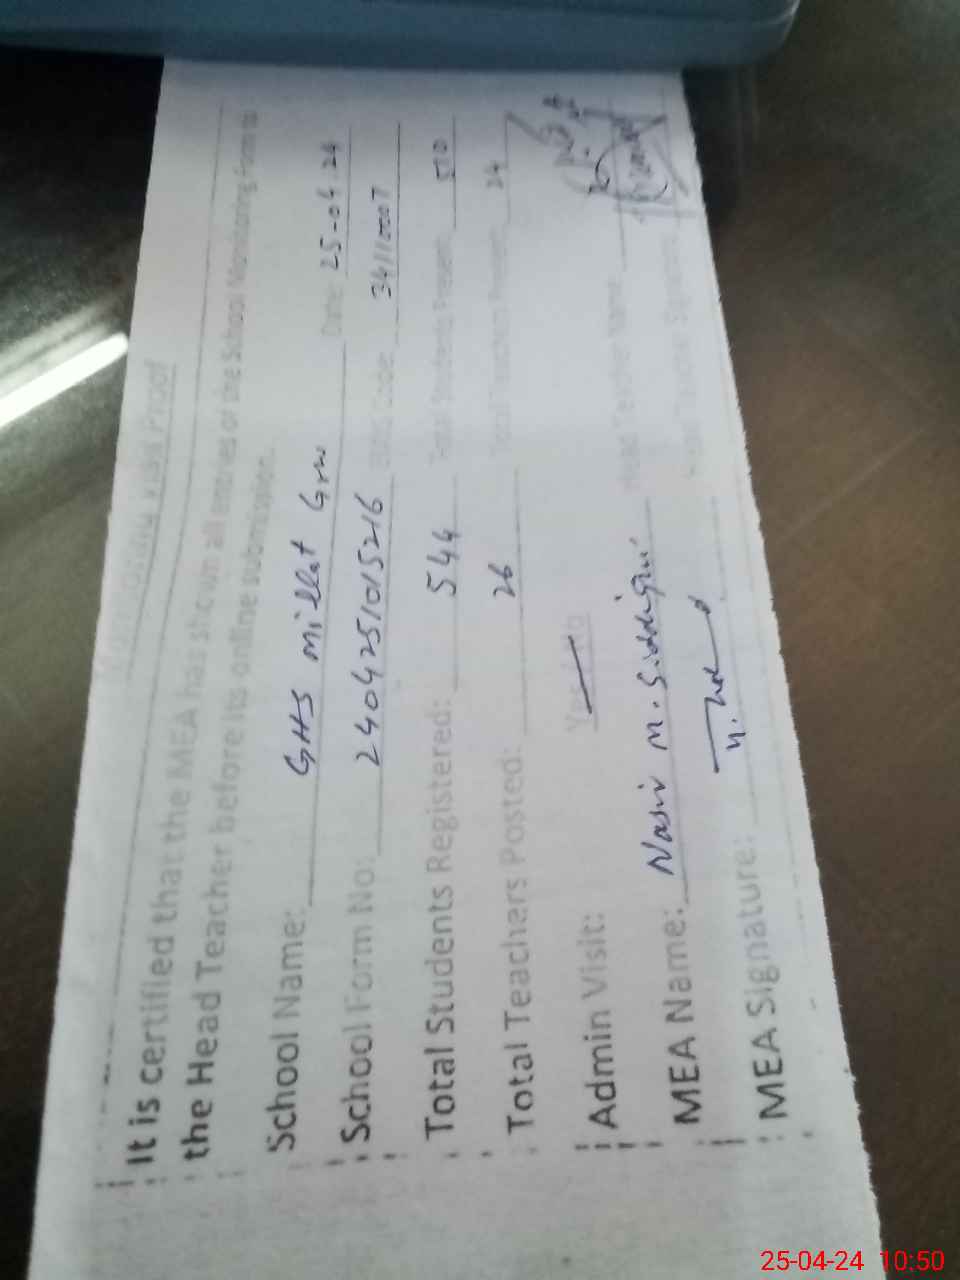 Monitoring Visit Proof
It is certified that the MEA has shown all entries of the School Monitoring Form to
the Head Teacher before its online submission.
School Name: GHS Millat Grw Date: 25-04-24
School Form No: 2404251015216 EMIS Code: 34110007
Total Students Registered: 544 Total Students Present: 510
Total Teachers Posted: 26 Total Teachers Present: 24
Admin Visit: Yes / No
MEA Name: Nasir M. Siddiqui Head Teacher Name:
MEA Signature: Head Teacher Signature:
25-04-24 10:50